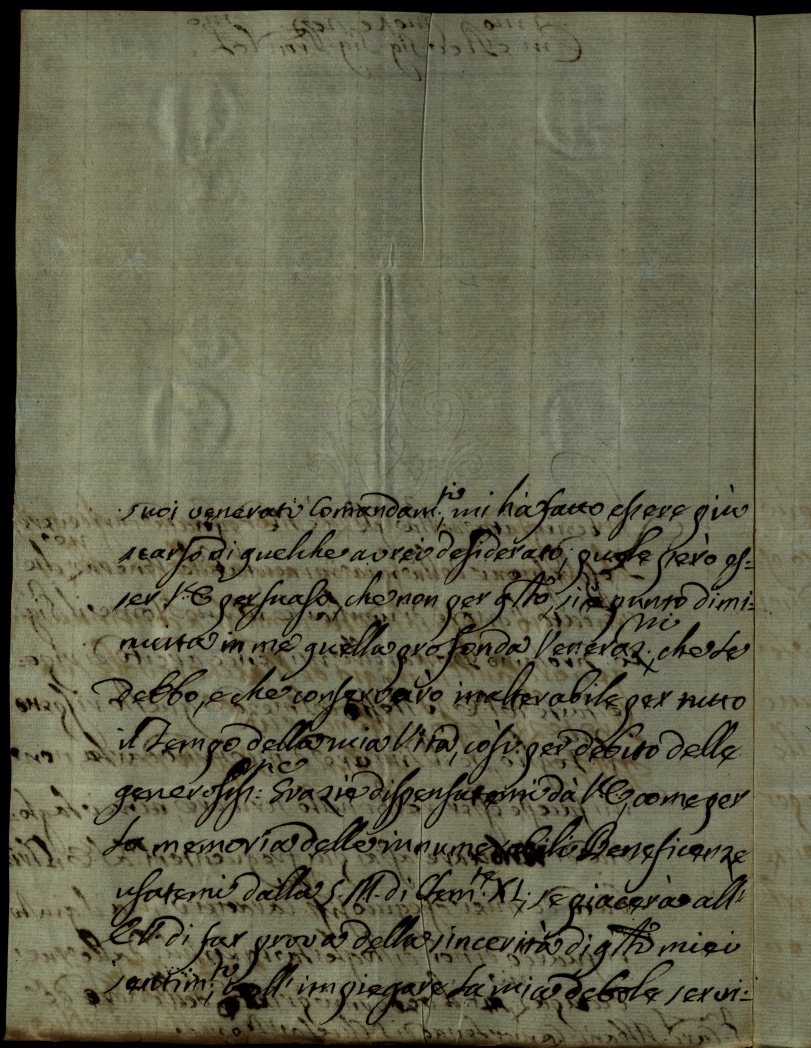 suoi venerati Comandam.ti, mi hà fatto essere più
scarso di quel che avrei desiderato; puole però es=
ser V.E. persuasa, che non per q.sto, sia punto dimi=
nuita in me quella profonda Veneraz.ne, che le
debbo, e che conserverò inalterabile per tutto
il Tempo della mia Vita, così per debito delle
generosiss.me Grazie dispensatemi dà V.E., come per
la memoria delle innumerabili Beneficenze
usatemi dalla S.M. di Clem.te XI; se piacerà all'
E.V. di far prova della sincerità di q.sti miei
sentim.ti, coll' impiegare la mia debole servi=